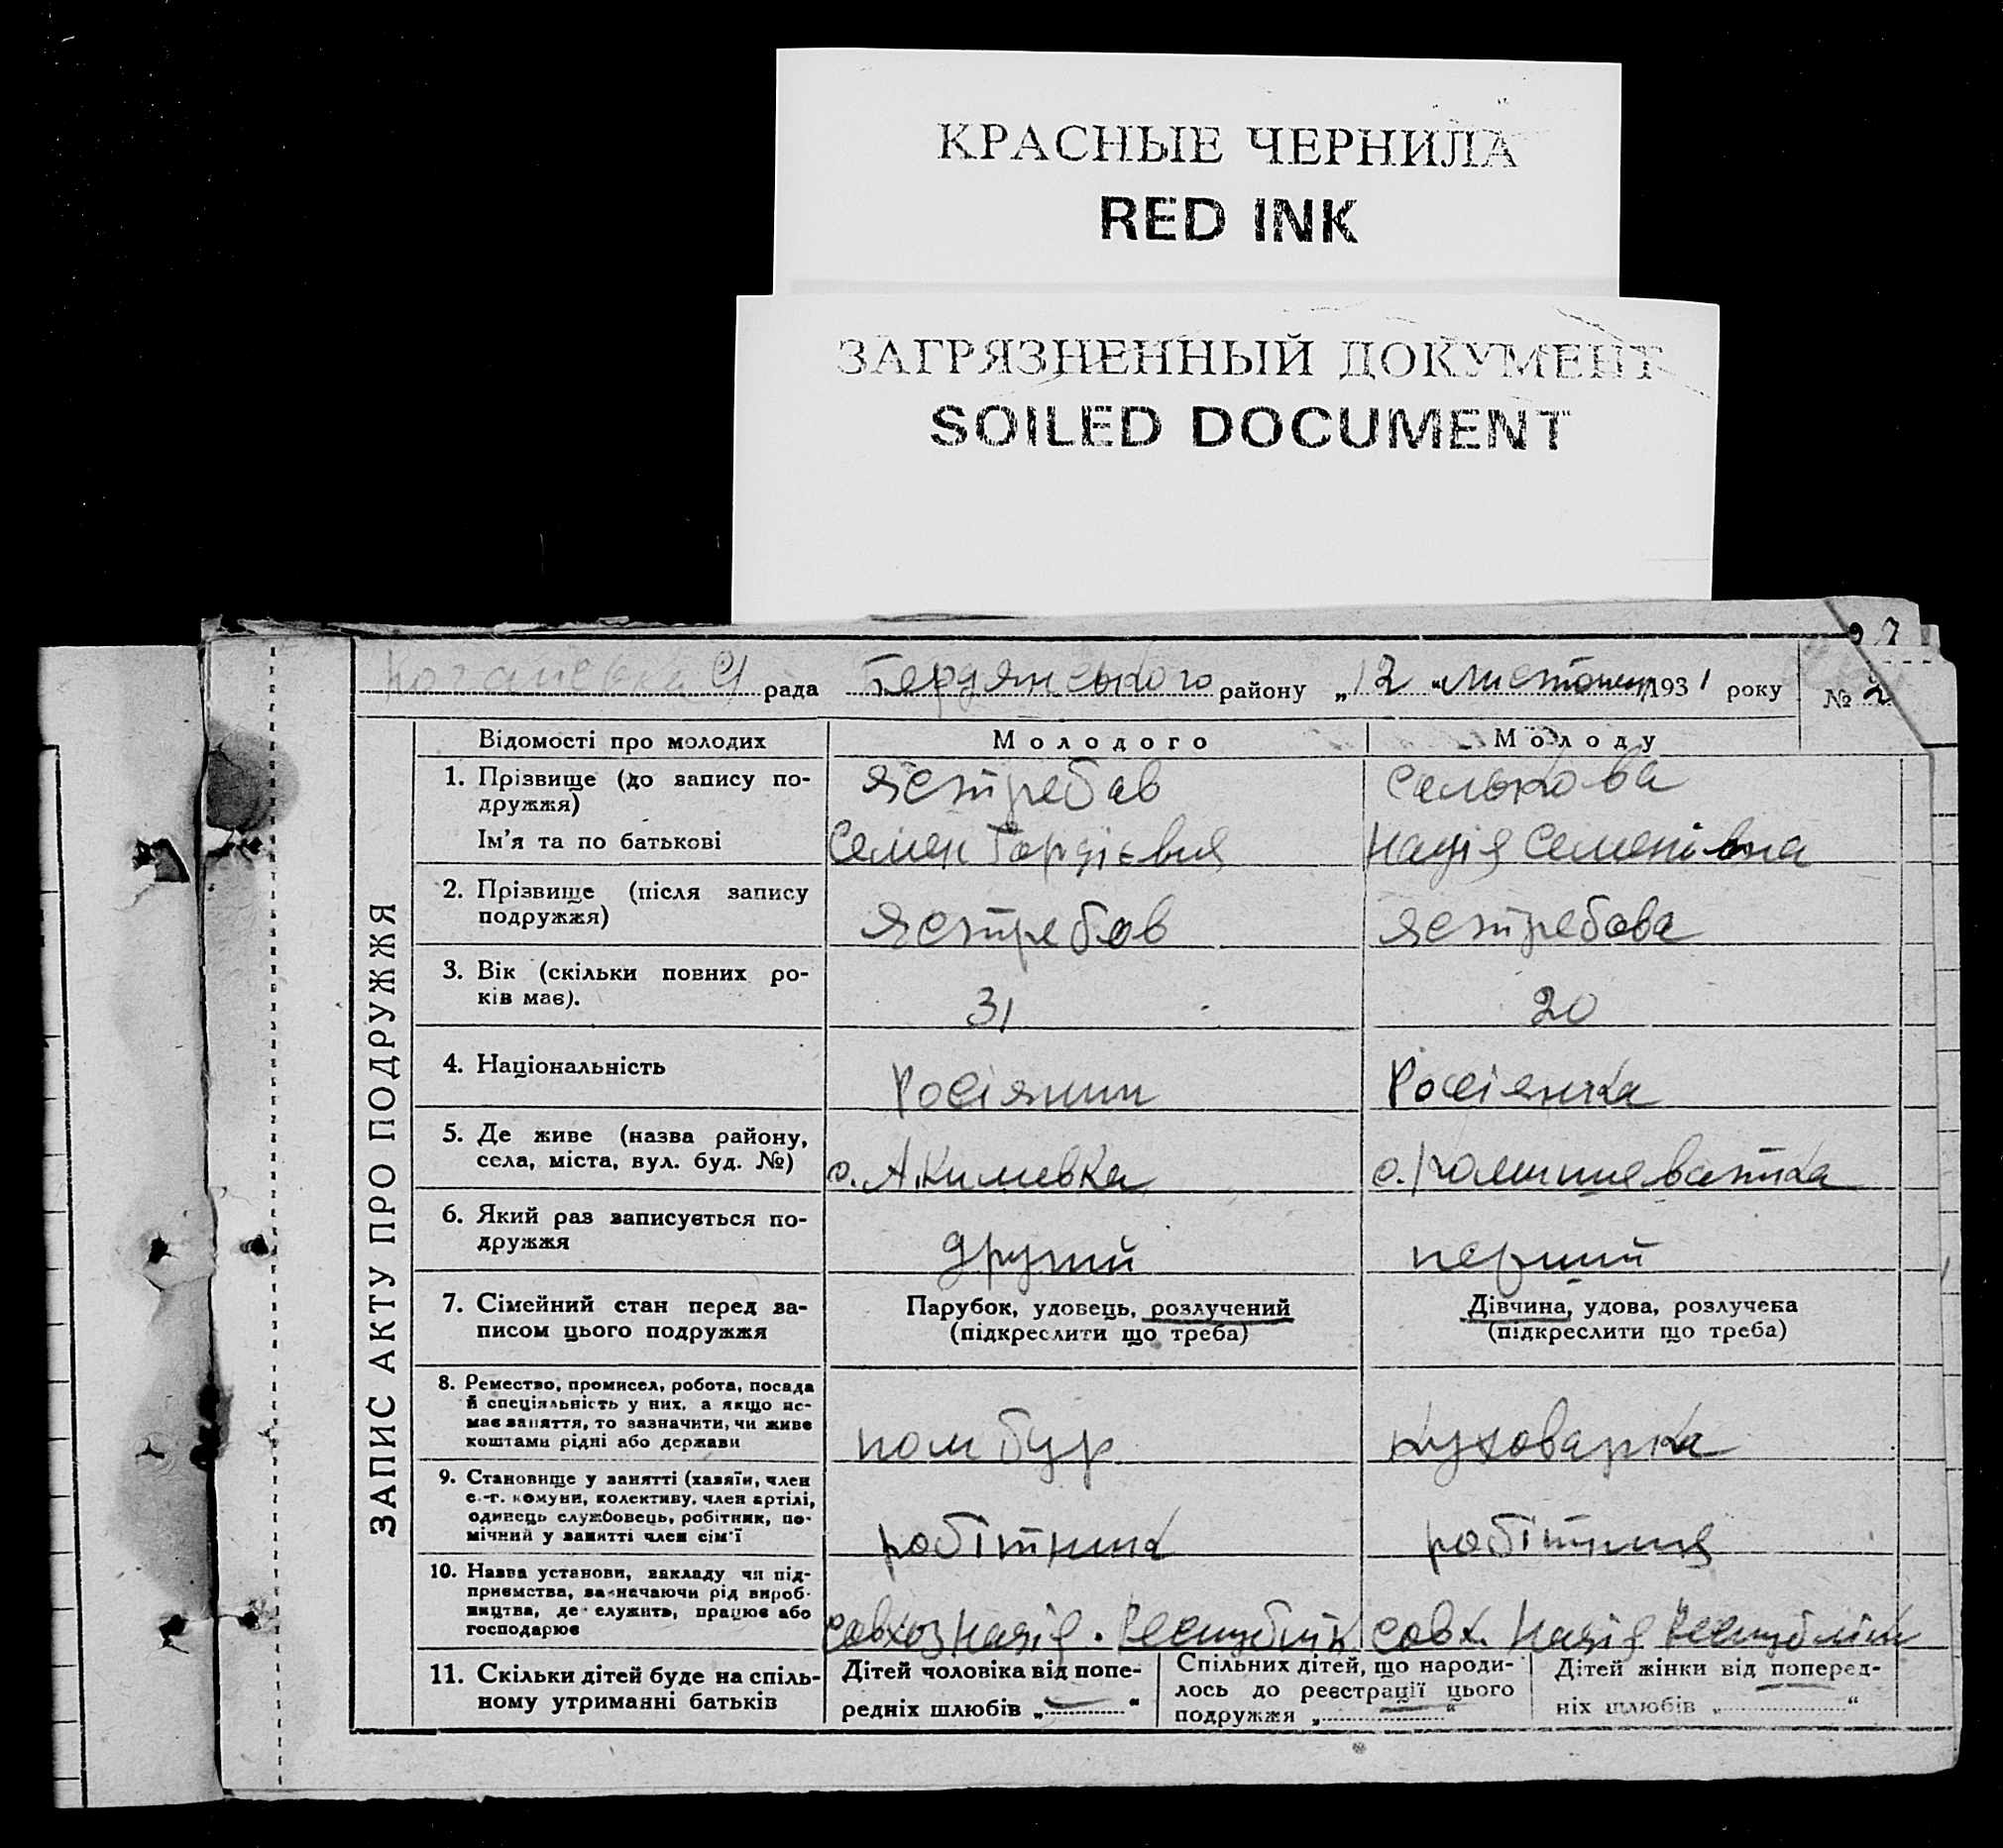 КРАСНЫЕ ЧЕРНИЛА
RED INK
ЗАГРЯЗНЕННЫЙ ДОКУМЕНТ
SOILED DOCUMENT
рада Бердянського району „12 “ листопад 1931 року № 2
ЗАПИС АКТУ ПРО ПОДРУЖЖЯ
Відомості про молодих
Молодого
Молоду
1. Прізвище (до запису по-
дружжя)
Ястребов
Селькова
Ім'я та по батькові
Семен Гордієвич
Надія Семенівна
2. Прізвище (після запису
подружжя)
Ястребов
Ястребова
3. Вік (скільки повних ро-
ків має).
31
20
4. Національність
Росіянин
Росіянка
5. Де живе (назва району,
села, міста, вул. буд. №)
с. Акимовка
с.
6. Який раз записується по-
дружжя
другий
перший
7. Сімейний стан перед за-
писом цього подружжя
Парубок, удовець, розлучений
(підкреслити що треба)
Дівчина, удова, розлучена
(підкреслити що треба)
8. Ремество, промисел, робота, посада
й спеціяльність у них, а якщо не-
має заняття, то зазначити, чи живе
коштами рідні або держави
помбур
куховарка
9. Становище у занятті (хазяїн, член
с.-г. комуни, колективу, член артілі,
одинець службовець, робітник, по-
мічний у занятті член сім'ї
робітник
робітниця
10. Назва установи, закладу чи під-
приємства, зазначаючи рід вироб-
ництва, де служить, працює або
господарює
совхоз Надія. Республік
совх. Надія Республік
11. Скільки дітей буде на спіль-
ному утриманні батьків
Дітей чоловіка від попе-
редніх шлюбів „ — “
Спільних дітей, що народи-
лось до реєстрації цього
подружжя „ — “
Дітей жінки від поперед-
ніх шлюбів „ “